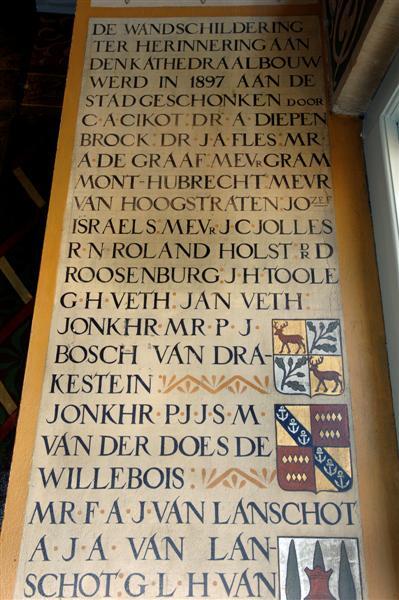 DE WANDSCHILDERING
TER HERINNERING AAN
DEN KATHEDRAALBOUW
WERD IN 1897 AAN DE
STAD GESCHONKEN DOOR
C·A·CIKOT: DR·A·DIEPEN
BROCK: DR·J·A·FLES: MR·
A·DE GRAAF: MEVR GRAM
MONT-HUBRECHT: MEVR
VAN HOOGSTRATEN: JOZEF
ISRAELS: MEVR J·C·JOLLES
R·N·ROLAND HOLST: DR D
ROOSENBURG: J·H·TOOLE
G·H·VETH: JAN VETH:
JONKHR·MR·P·J·
BOSCH VAN DRA-
KESTEIN
JONKHR·P·J·J·S·M·
VAN DER DOES DE
WILLEBOIS:
MR·F·A·J·VAN LANSCHOT
A·J·A·VAN LAN-
SCHOT: G·L·H·VAN